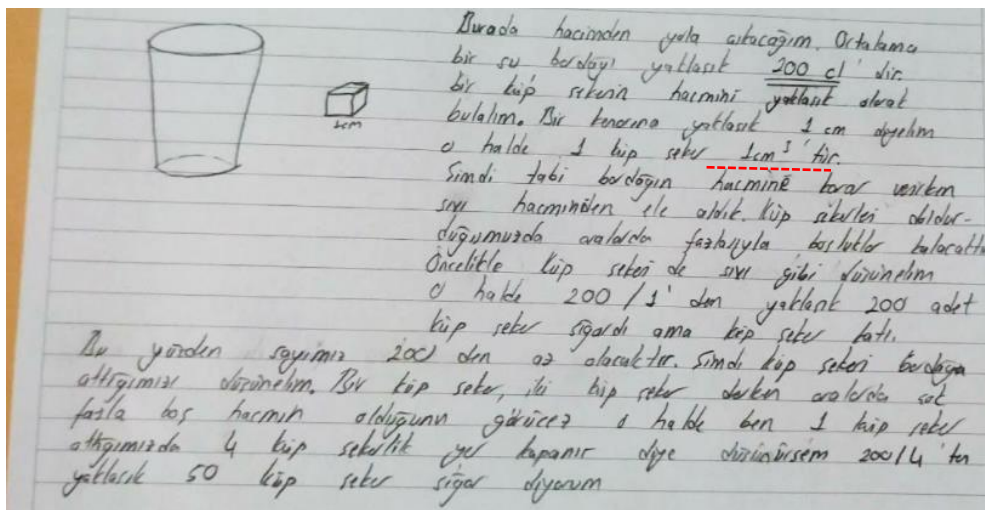 Burada hacimden yola çıkacağım. Ortalama
bir su bardağı yaklaşık 200 cl' dir.
bir küp şekerin hacmini yaklaşık olarak
bulalım. Bir kenarına yaklaşık 1 cm diyelim
1cm
o halde 1 küp şeker 1cm³ 'tür.
Şimdi tabi bardağın hacmine karar verirken
sıvı hacminden ele aldık. Küp şekerleri doldur-
duğumuzda aralarda fazlasıyla boşluklar kalacaktır
Öncelikle küp şekeri de sıvı gibi düşünelim
o halde 200 / 1' den yaklaşık 200 adet
küp şeker sığardı ama küp şeker katı.
Bu yüzden sayımız 200 den az olacaktır. Şimdi küp şekeri bardağa
attığımızı düşünelim. Bir küp şeker, iki küp şeker derken aralarda çok
fazla boş hacmin olduğunu görücez o halde ben 1 küp şeker
attığımızda 4 küp şekerlik yer kapanır diye düşünürsem 200/4 'ten
yaklaşık 50 küp şeker sığar diyorum